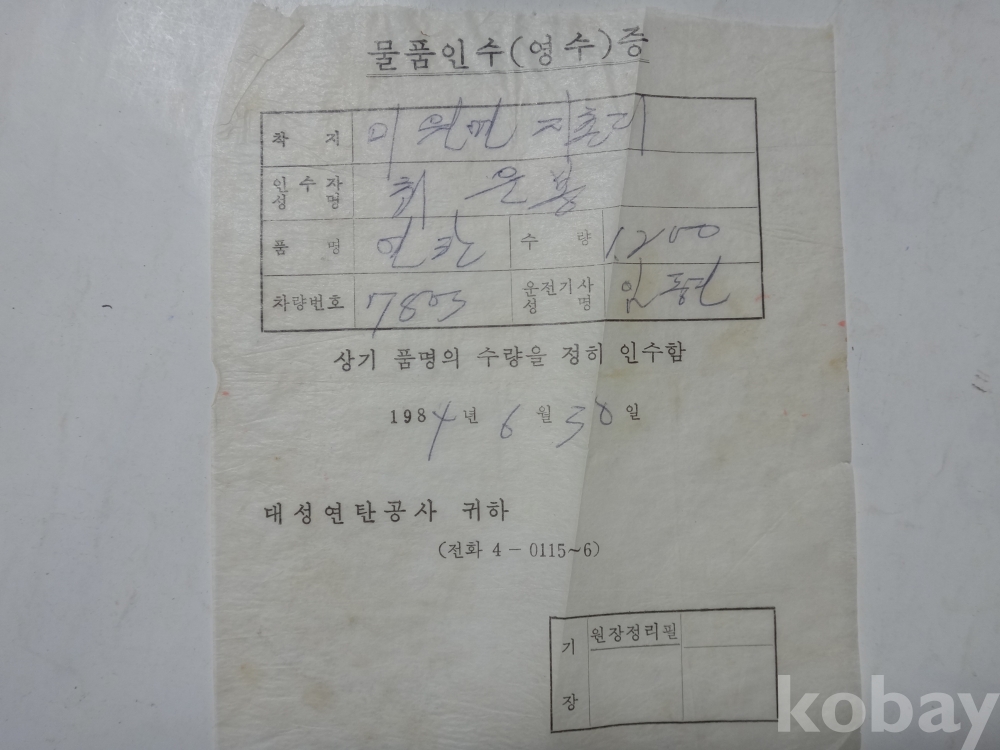 물품인수(영수)증
착 지 이원면 지촌리
인수자 성명 최 운봉
품 명 연탄 수 량 1,200
차량번호 7803 운전기사 성 명
상기 품명의 수량을 정히 인수함
1984년 6월 30일
대성연탄공사 귀하
(전화 4-0115~6)
기장 원장정리필
kobay